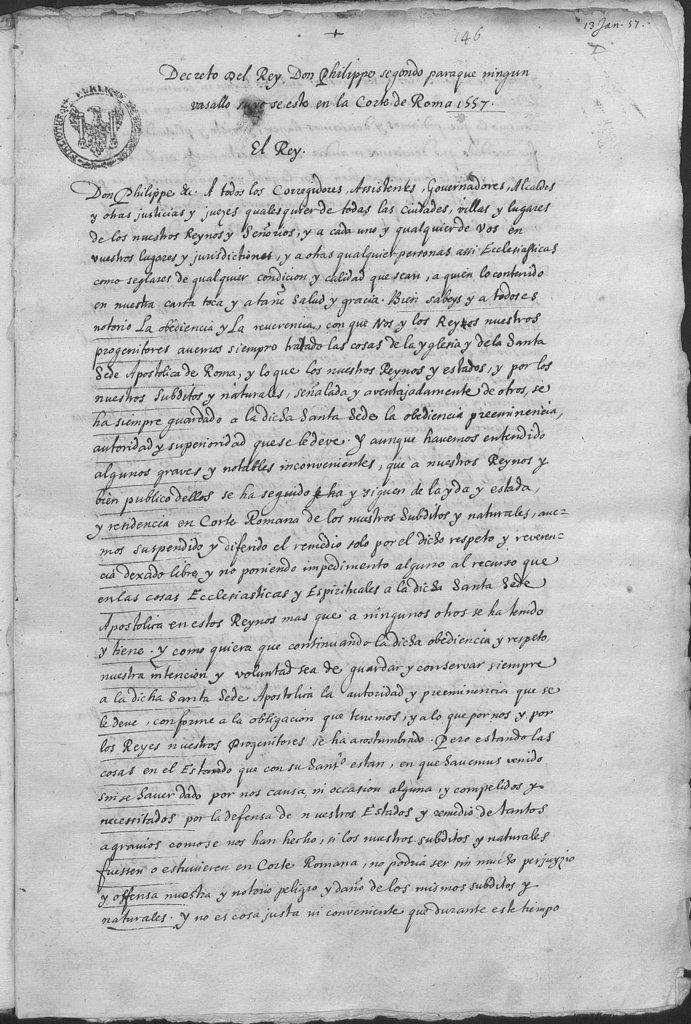 13 Jan. 57.
+
146
Decreto del Rey Don Philippe segondo paraque ningun
vasallo suyo se este en la Corte de Roma 1557.
El Rey.
Don Philippe &c. A todos los Corregidores, Assistentes, Governadores, Alcaldes
y otras justicias y juezes quales quier de todas las ciudades, villas y lugares
de los nuestros Reynos y Señorios, y a cada uno y qualquier de vos en
vuestros lugares y jurisdictiones, y a otras qualquier personas assi Ecclesiasticas
como seglares de qualquier condicion y calidad que sean, a quien lo contenido
en nuestra carta toca y atañe Salud y gracia. Bien sabeys y a todos es
notorio La obediencia y La reverencia, con que Nos, y los Reyes nuestros
progenitores avemos siempre tratado las cosas de la yglesia y de la Santa
Sede Apostolica de Roma, y lo que los nuestros Reynos y estados, y por los
nuestros Subditos y naturales, señalada y aventajadamente de otros, se
ha siempre guardado a la dicha Santa Sede la obediencia preeminencia,
autoridad y superioridad que se le deve. Y aunque havemos entendido
algunos graves y notables inconvenientes, que a nuestros Reynos y
bien publico dellos se ha seguido ha y siguen de la yda y estada,
y residencia en Corte Romana de los nuestros Subditos y naturales, ave-
mos suspendido y diferido el remedio solo por el dicho respeto y reveren-
cia dexado libre y no poniendo impedimento alguno al recurso que
en las cosas Ecclesiasticas y Espirituales a la dicha Santa Sede
Apostolica en estos Reynos mas que a ningunos otros se ha tenido
y tiene. y como quiera que continuando la dicha obediencia y respeto
nuestra intención y voluntad sea de guardar y conservar siempre
a la dicha Santa Sede Apostolica la autoridad y preeminencia que se
le deve, conforme a la obligacion que tenemos, y a lo que por nos y por
los Reyes nuestros Progenitores se ha acostumbrado. Pero estando las
cosas en el Estando que con su Santd. estan, en que havemus venido
sin se haver dado por nos causa, ni occasion alguna, y compelidos y
necessitados por la defensa de nuestros Estados y remedio de tantos
agravios como se nos han hecho, si los nuestros subditos y naturales
fuessen o estuvieren en Corte Romana, no podria ser sin mucho perjuyzio
y offensa nuestra y notorio peligro y daño de los mismos subditos y
naturales. Y no es cosa justa ni conveniente que durante este tiempo